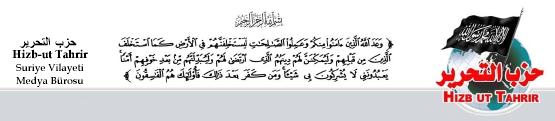 بسم الله الرحمن الرحيم
حزب التحرير
Hizb-ut Tahrir
Suriye Vilayeti
Medya Bürosu
﴿ وَعَدَ اللَّهُ الَّذِينَ ءَامَنُوا مِنكُمْ وَعَمِلُوا الصَّالِحَاتِ لَيَسْتَخْلِفَنَّهُمْ فِي الْأَرْضِ كَمَا اسْتَخْلَفَ
الَّذِينَ مِن قَبْلِهِمْ وَلَيُمَكِّنَنَّ لَهُمْ دِينَهُمُ الَّذِي ارْتَضَى لَهُمْ وَلَيُبَدِّلَنَّهُم مِّن بَعْدِ خَوْفِهِمْ أَمْنًا
يَعْبُدُونَنِي لَا يُشْرِكُونَ بِي شَيْئًا وَمَن كَفَرَ بَعْدَ ذَلِكَ فَأُولَئِكَ هُمُ الْفَاسِقُونَ ﴾
لا إله إلا الله محمد رسول الله
حزب التحرير
HIZB UT TAHRIR